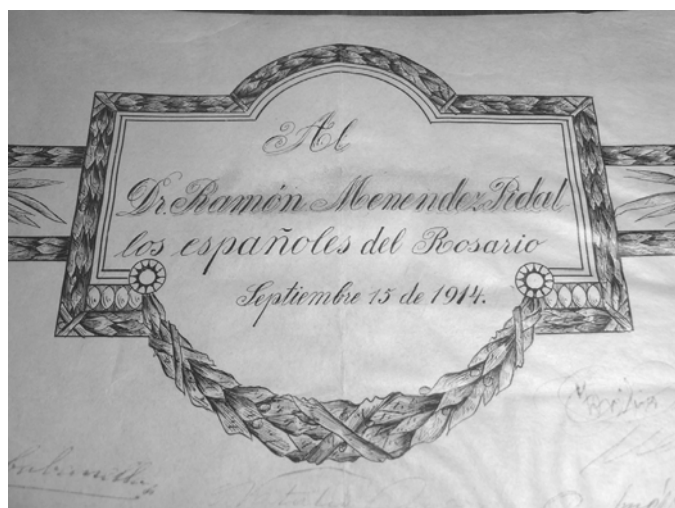 Al
Dr. Ramón Menendez Pidal
los españoles del Rosario
Septiembre 15 de 1914.